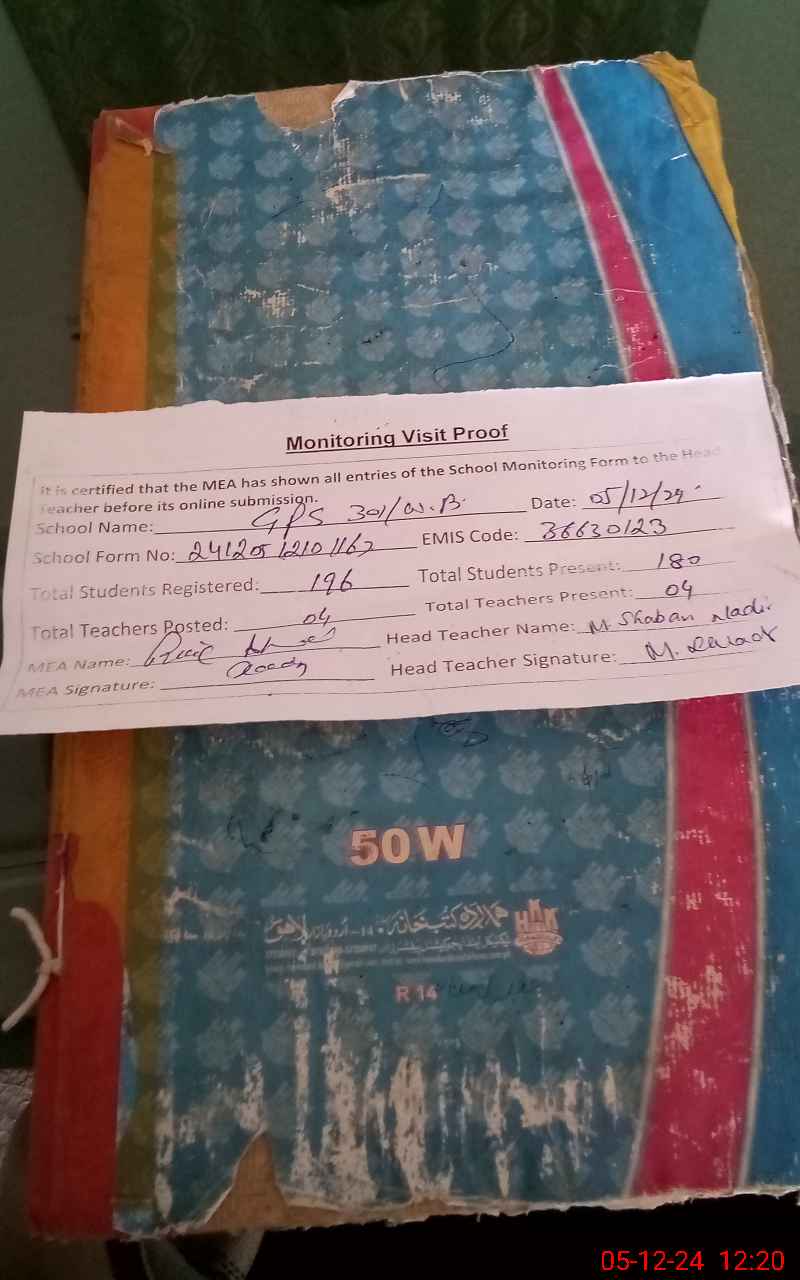 Monitoring Visit Proof
It is certified that the MEA has shown all entries of the School Monitoring Form to the Head
teacher before its online submission.
School Name: GPS 301/W.B. Date: 05/12/24
School Form No: EMIS Code: 36630123
Total Students Registered: 196 Total Students Present: 180
Total Teachers Posted: 04 Total Teachers Present: 04
MEA Name: Head Teacher Name: M. Shaban Nadir
MEA Signature: Head Teacher Signature: M.
50 W
کتب خانہ
HBK
R 14
05-12-24 12:20